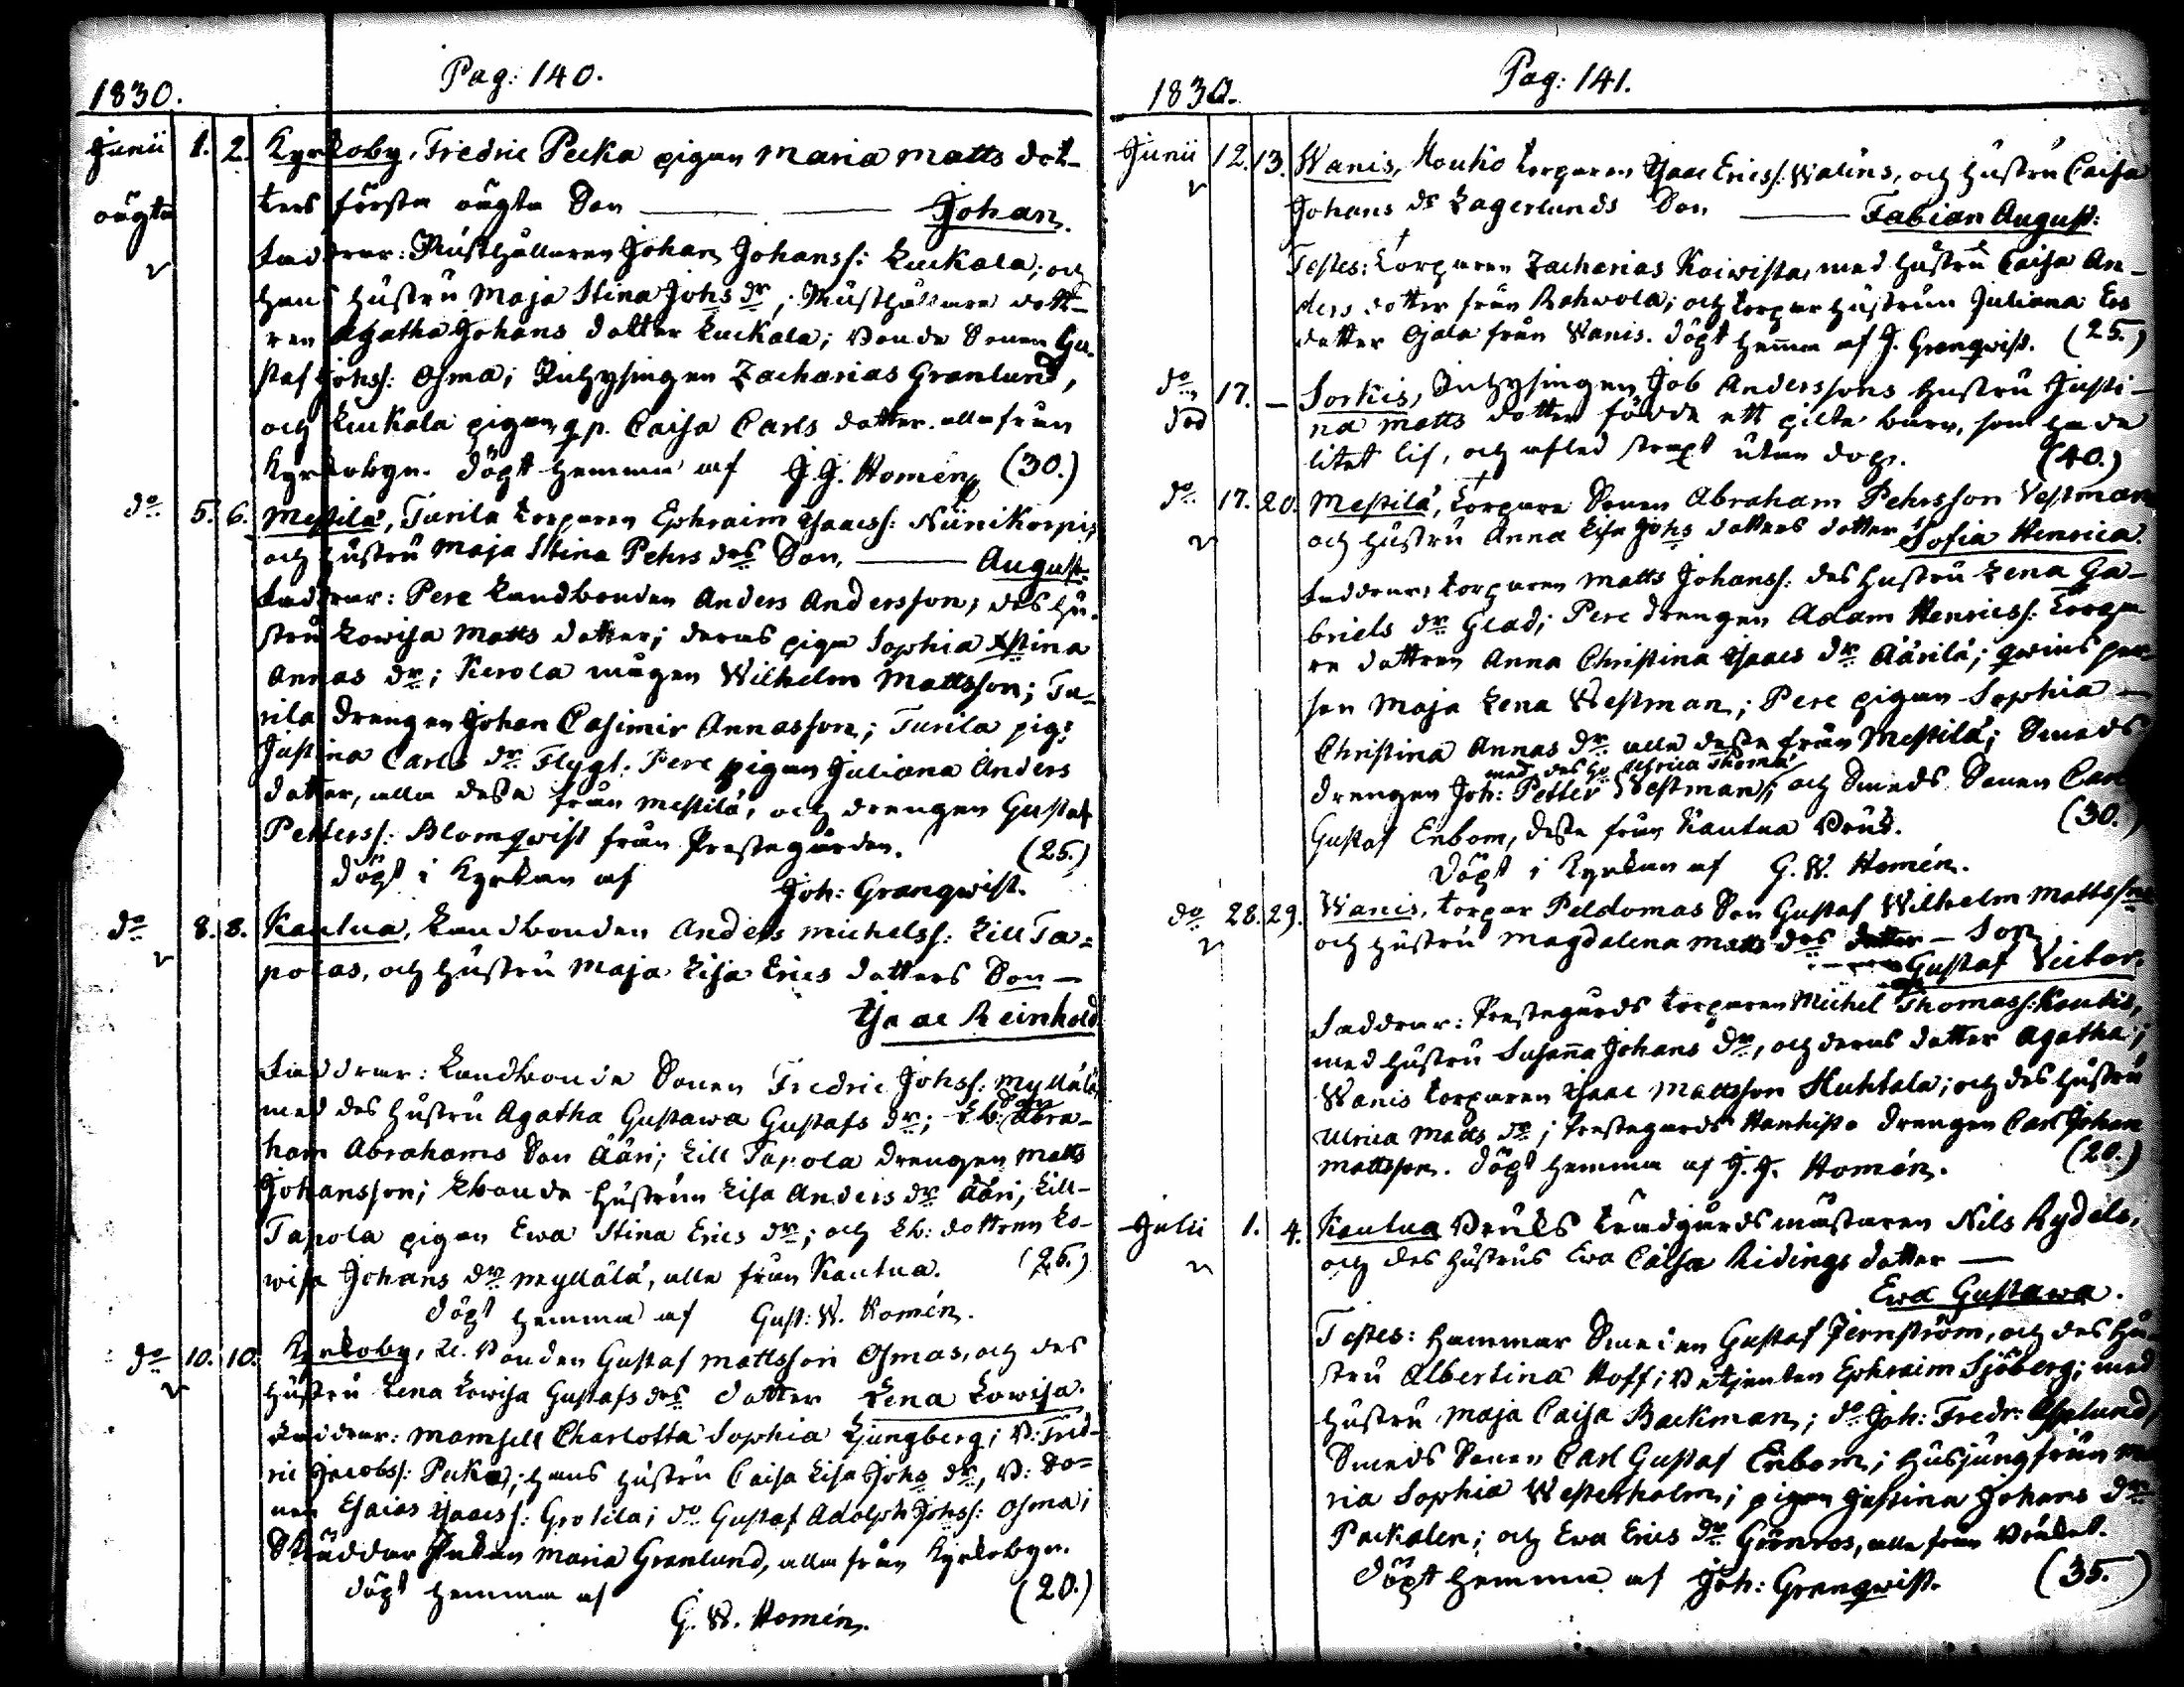 1830. Pag: 140.
Junii 1. 2. Kyrkoby, Fredric Pecka pigan Maria Matts dot-
oägta ters första oägta Son Johan.
Faddrar: Rusthållaren Johan Johanss: Kuckala; och
hans hustru Maja Stina Johs dr; Rusthållare dott-
ren Agatha Johans dotter Kuckala; Bonde Sonen Gu-
staf Johss: Osma; Inhysingen Zacharias Granlund,
och Kuckala pigan qp. Caisa Carls dotter. alla från
Kyrkobyn. döpt hemma af J. J. Homén (30.)
do 5. 6. Mestilä, Turila torparen Ephraim Isaacss: Niinikorpis,
och hustru Maja Stina Pehrs drs Son, August.
Faddrar: Pere Landbonden Anders Andersson, des hu-
stru Lowisa Matts dotter; deras piga Sophia Xstina
Annas dr; Kerola mågen Wilhelm Mattsson; Tu-
rila drengen Johan Casimir Annasson; Turila pig:
Justina Carls dr Flygt; Pere pigan Juliana Anders
dotter, alla dessa från Mestilä, och drengen Gustaf
Petterss: Blomqwist från Prestegården. (25.)
döpt i Kyrkan af Joh: Granqwist.
do 8. 8. Kautua, Landbonden Anders Michelss: Lill Ta-
polas, och hustru Maja Lisa Erics dotters Son —
Isaac Reinhold
Faddrar: Landbonde Sonen Fredric Johss: Myllälä,
med des hustru Agatha Gustawa Gustafs dr; Lb: Son Abra-
ham Abrahams Son Ääri; Lill Tapola drengen Matts
Johansson; Lbonde hustrun Lisa Anders dr Ääri; Lill-
Tapola pigan Ewa Stina Erics dr; och Lb: dottren Lo-
wisa Johans dr Myllälä, alla från Kautua. (26.)
döpt hemma af Gust: W. Homén.
do 10. 10. Kyrkoby, Bonden Gustaf Mattsson Osmas, och des
hustru Lena Lowisa Gustafs drs dotter Lena Lowisa.
Faddrar: Mamsell Charlotta Sophia Ljungberg; B: Fred-
ric Jacobss: Pecka; hans hustru Caisa Lisa Johs dr, B: So-
nen Esaias Isaacss: Grotila; do Gustaf Adolph Johss: Osma;
Skräddar Enkan Maria Granlund, alla från Kyrkobyn.
döpt hemma af (20.)
G. W. Homén.
1830. Pag: 141.
Junii 12. 13. Wanis, Kouho torparen Isaac Ericss: Waléns, och hustru Caisa
Johans dr Lagerlunds Son Fabian August:
Testes: torparen Zacharias Koiwista, med hustru Caisa An-
ders dotter från Rahwola; och torpar hustrun Juliana Eos
dotter Ojala från Wanis. döpt hemma af J. Granqwist. (25.)
do 17. — Sorkis, Inhysingen Job Anderssons hustru Justi-
död na Matts dotter födde ett pilte barn, som hade
litet lif, och afled strax utan dop. (40.)
do 17. 20. Mestilä, torpare Sonen Abraham Pehrsson Vestman
och hustru Anna Lisa Johs dotters dotter Sofia Henrica.
Faddrar, torparen Matts Johanss: des hustru Lena Ga-
briels dr Glad; Pere drengen Adam Henricss: torpa-
re dottren Anna Christina Isaacs dr Äärilä; qwinsper-
son Maja Lena Westman; Pere pigan Sophia —
Christina Annas dr alla dessa från Mestilä; Smeds
med des hu Ulrica Thoma
drengen Joh: Petter Westman; och Smeds Sonen Carl
Gustaf Enbom, dessa från Kautua Bruk. (30.)
Döpt i Kyrkan af G. W. Homén.
do 28. 29. Wanis, torpar Peldomas Son Gustaf Wilhelm Mattsson
och hustru Magdalena Matts drs dotter — Son
Gustaf Victor.
Faddrar: Prestegårds torparen Michel Thomass: Koutis,
med hustru Susanna Johans dr, och deras dotter Agatha;
Wanis torparen Isaac Mattsson Huhtala; och des hustru
Ulrica Matts dr; Prestegårds Hankisto drengen Carl Johan
Mattsson. Döpt hemma af J. J. Homén. (20.)
Julii 1. 4. Kautua Bruks trädgårdsmästaren Nils Rydéls,
och des hustrus Ewa Caisa Ridings dotter —
Ewa Gustawa.
Testes: Hammar Smeden Gustaf Jernström, och des hu-
stru Albertina Hoff; Betjenten Ephraim Sjöberg; med
hustru Maja Caisa Backman; do Joh: Fredr: Asplund,
Smeds Sonen Carl Gustaf Enbom; husjungfrun Ma
ria Sophia Westerholm; pigan Justina Johans dr
Packalen; och Ewa Erics dr Grönroos, alla från Bruket.
Döpt hemma af Joh: Granqwist. (35.)